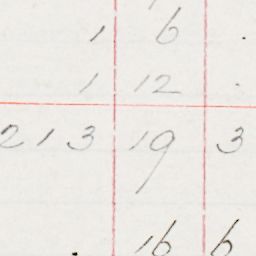 1 6 .
1 12 .
213 19 3
16 6